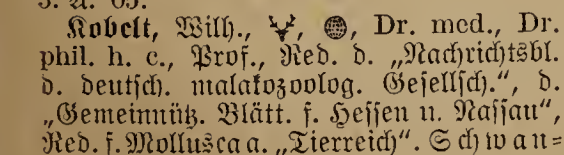 Kobelt, Wilh., Dr. med., Dr.
phil. h. c., Prof., Red. d. „Nachrichtsbl.
d. deutsch. malakozoolog. Gesellsch.“, d.
„Gemeinnütz. Blätt. f. Hessen u. Nassau“,
Red. f. Mollusca a. „Tierreich“. Schwan=